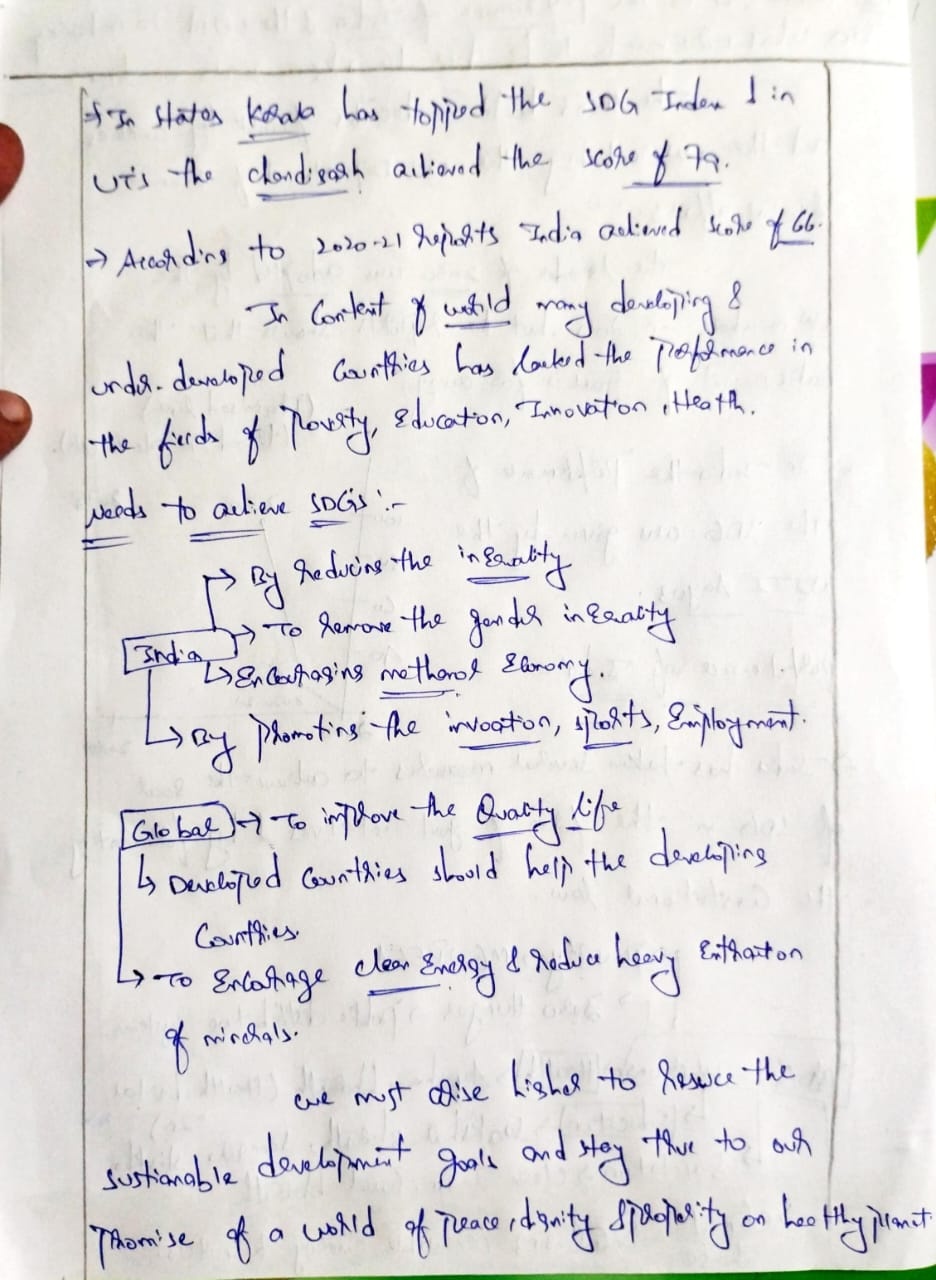 → In states Kerala has topped the SDG Index & in
UT's the chandigarh achieved the score of 79.
→ According to 2020-21 reports India achieved score of 66.
In Context of world many developing &
under-developed Countries has lacked the Performance in
the fields of Poverty, Education, Innovation, Health.
Needs to achieve SDG's :-
→ By reducing the inequality
→ To remove the gender inequality
India
↳ Encouraging methanol Economy.
↳ By promoting the invoation, sports, Employment.
Global → To improve the Quality life
↳ Developed Countries should help the developing
Countries.
↳ To Encourage clean Energy & reduce heavy Extraction
of minerals.
we must arise higher to rescue the
sustianable development goals and stay true to our
promise of a world of peace, dignity & prosperity on healthy planet.